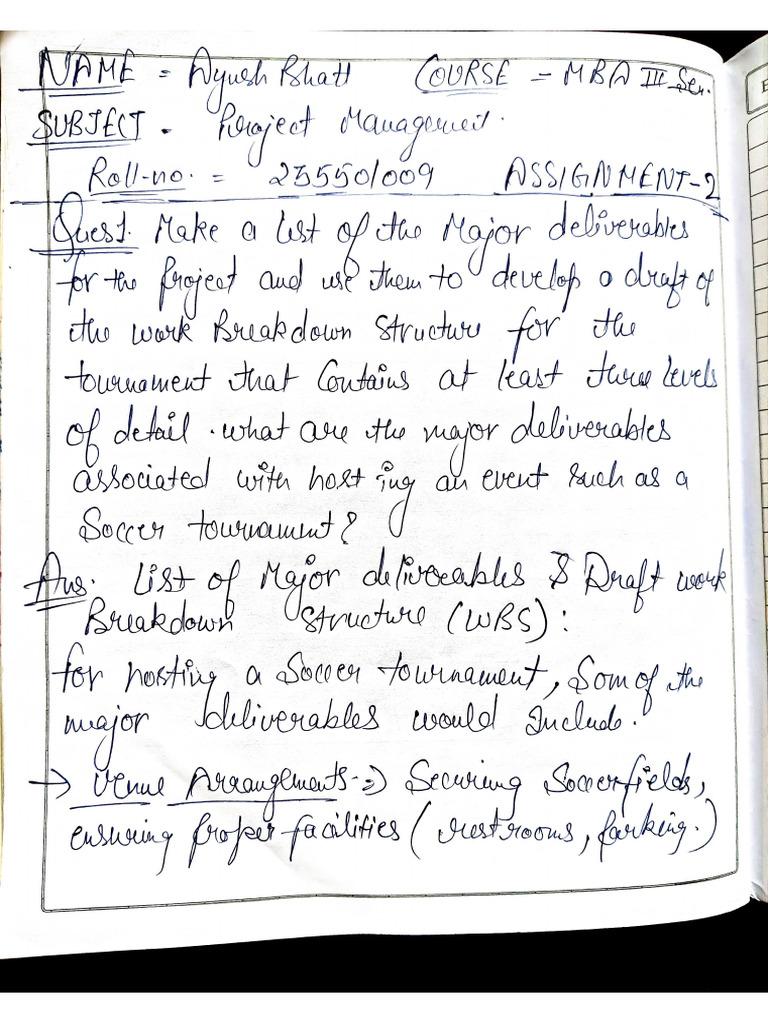 NAME = Ayush Bhatt COURSE - MBA III Sem.
SUBJECT - Project Management.
Roll-no. = 25550/009 ASSIGNMENT-2
Ques1. Make a list of the Major deliverables
for the project and use them to develop a draft of
the work Breakdown structure for the
tournament that Contains at least three levels
of detail. what are the major deliverables
associated with hosting an event such as a
Soccer tournament?
Ans. List of Major deliverables & Draft work
Breakdown structure (WBS):
for hosting a Soccer tournament, Som of the
major deliverables would Include.
→ Venue Arrangments => Securing Soccerfields,
ensuring proper facilities (restrooms, parking.)